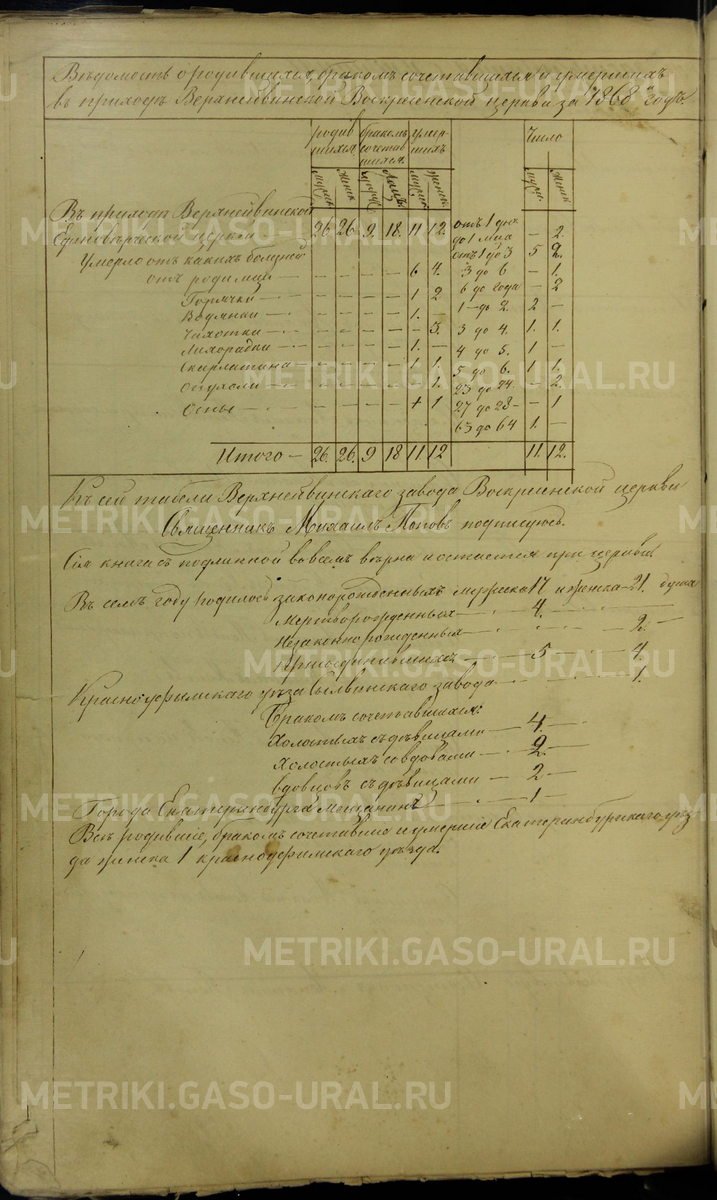 Вѣдомость о родившихся, бракомъ сочетавшихся и умершихъ
въ приходѣ Верхнейвинской Воскресенской церкви за 1868й годъ.
родив шихся. бракомъ сочетав шихся. умер шихъ Число
мужеск. женск. супруж. лицъ мужеск. женск. муж. женск.
Въ приходѣ Верхнейвинской
Единовѣрческой церкви 26 26 9. 18. 11 12. отъ 1 дня до 1 мца — 2.
Умерло отъ какихъ болѣзней отъ 1 до 3 5 2.
отъ родимца — — — — — 6 4. 3 до 6 — 1.
Горячки — — — — 1 2 6 до года — 2
Водянки — — — — — 1. — 1 — до 2. 2 —
Чахотки — — — — — — 3. 3 до 4. 1. 1.
Лихорадки — — — — — 1. — 4 до 5. 1 —
Скарлатина — — — — 1 1. 5 до 6. 1 1.
Опухоли — — — — — — 1. 23 до 24. — 2.
Оспы — — — — — + 1 27 до 28 — — 1
63 до 64 1. —
Итого — 26. 26. 9 18 11. 12 11. 12.
Къ сей табели Верхнейвинскаго завода Воскресенской церкви
Священникъ Михаилъ Поповъ подписуюсь.
Сія книга съ подлинной во всемъ вѣрна и остается при церкви.
Въ семъ году родилось законорожденныхъ мужеска 17 и женска — 21. душа
Мертворожденныхъ — 4.
Незаконнорожденныхъ — 2. —
присоединившихъ — 5 — 4.
Красноуфимскаго уѣзда Сылвинскаго завода — 1.
Бракомъ сочетавшихся:
Холостыхъ съ дѣвицами — 4. —
холостыхъ со вдовами — 2. —
вдовцовъ съ дѣвицами — 2 —
Города Екатеринбурга Мещанинъ — 1 —
Всѣ родившіе, бракомъ сочетавшіе и умершіе Екатеринбургскаго уѣз
да женска 1 красноуфимскаго уѣзда.
METRIKI.GASO-URAL.RU